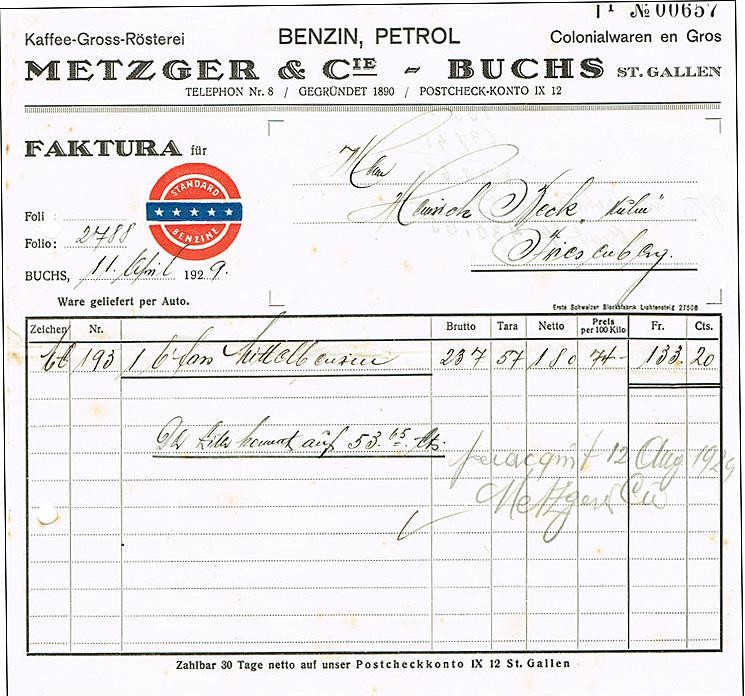 № 00657
Kaffee-Gross-Rösterei BENZIN, PETROL Colonialwaren en Gros
METZGER & CIE - BUCHS ST. GALLEN
TELEPHON Nr. 8 / GEGRÜNDET 1890 / POSTCHECK-KONTO IX 12
FAKTURA für
STANDARD
BENZINE
Herrn
Heinrich Beck "Kulm"
Triesenberg.
Foli :
Folio: 2788
BUCHS, 11. April 1929.
Ware geliefert per Auto.
Erste Schweizer Blockfabrik Lichtensteig 27508
Zeichen Nr. Brutto Tara Netto Preis per 100 Kilo Fr. Cts.
193 1 Mittelbenzin 237 57 180 74- 133. 20
Liter kommt auf 53.65 Cts.
12 Aug 1929
Metzger & Cie
Zahlbar 30 Tage netto auf unser Postcheckkonto IX 12 St. Gallen